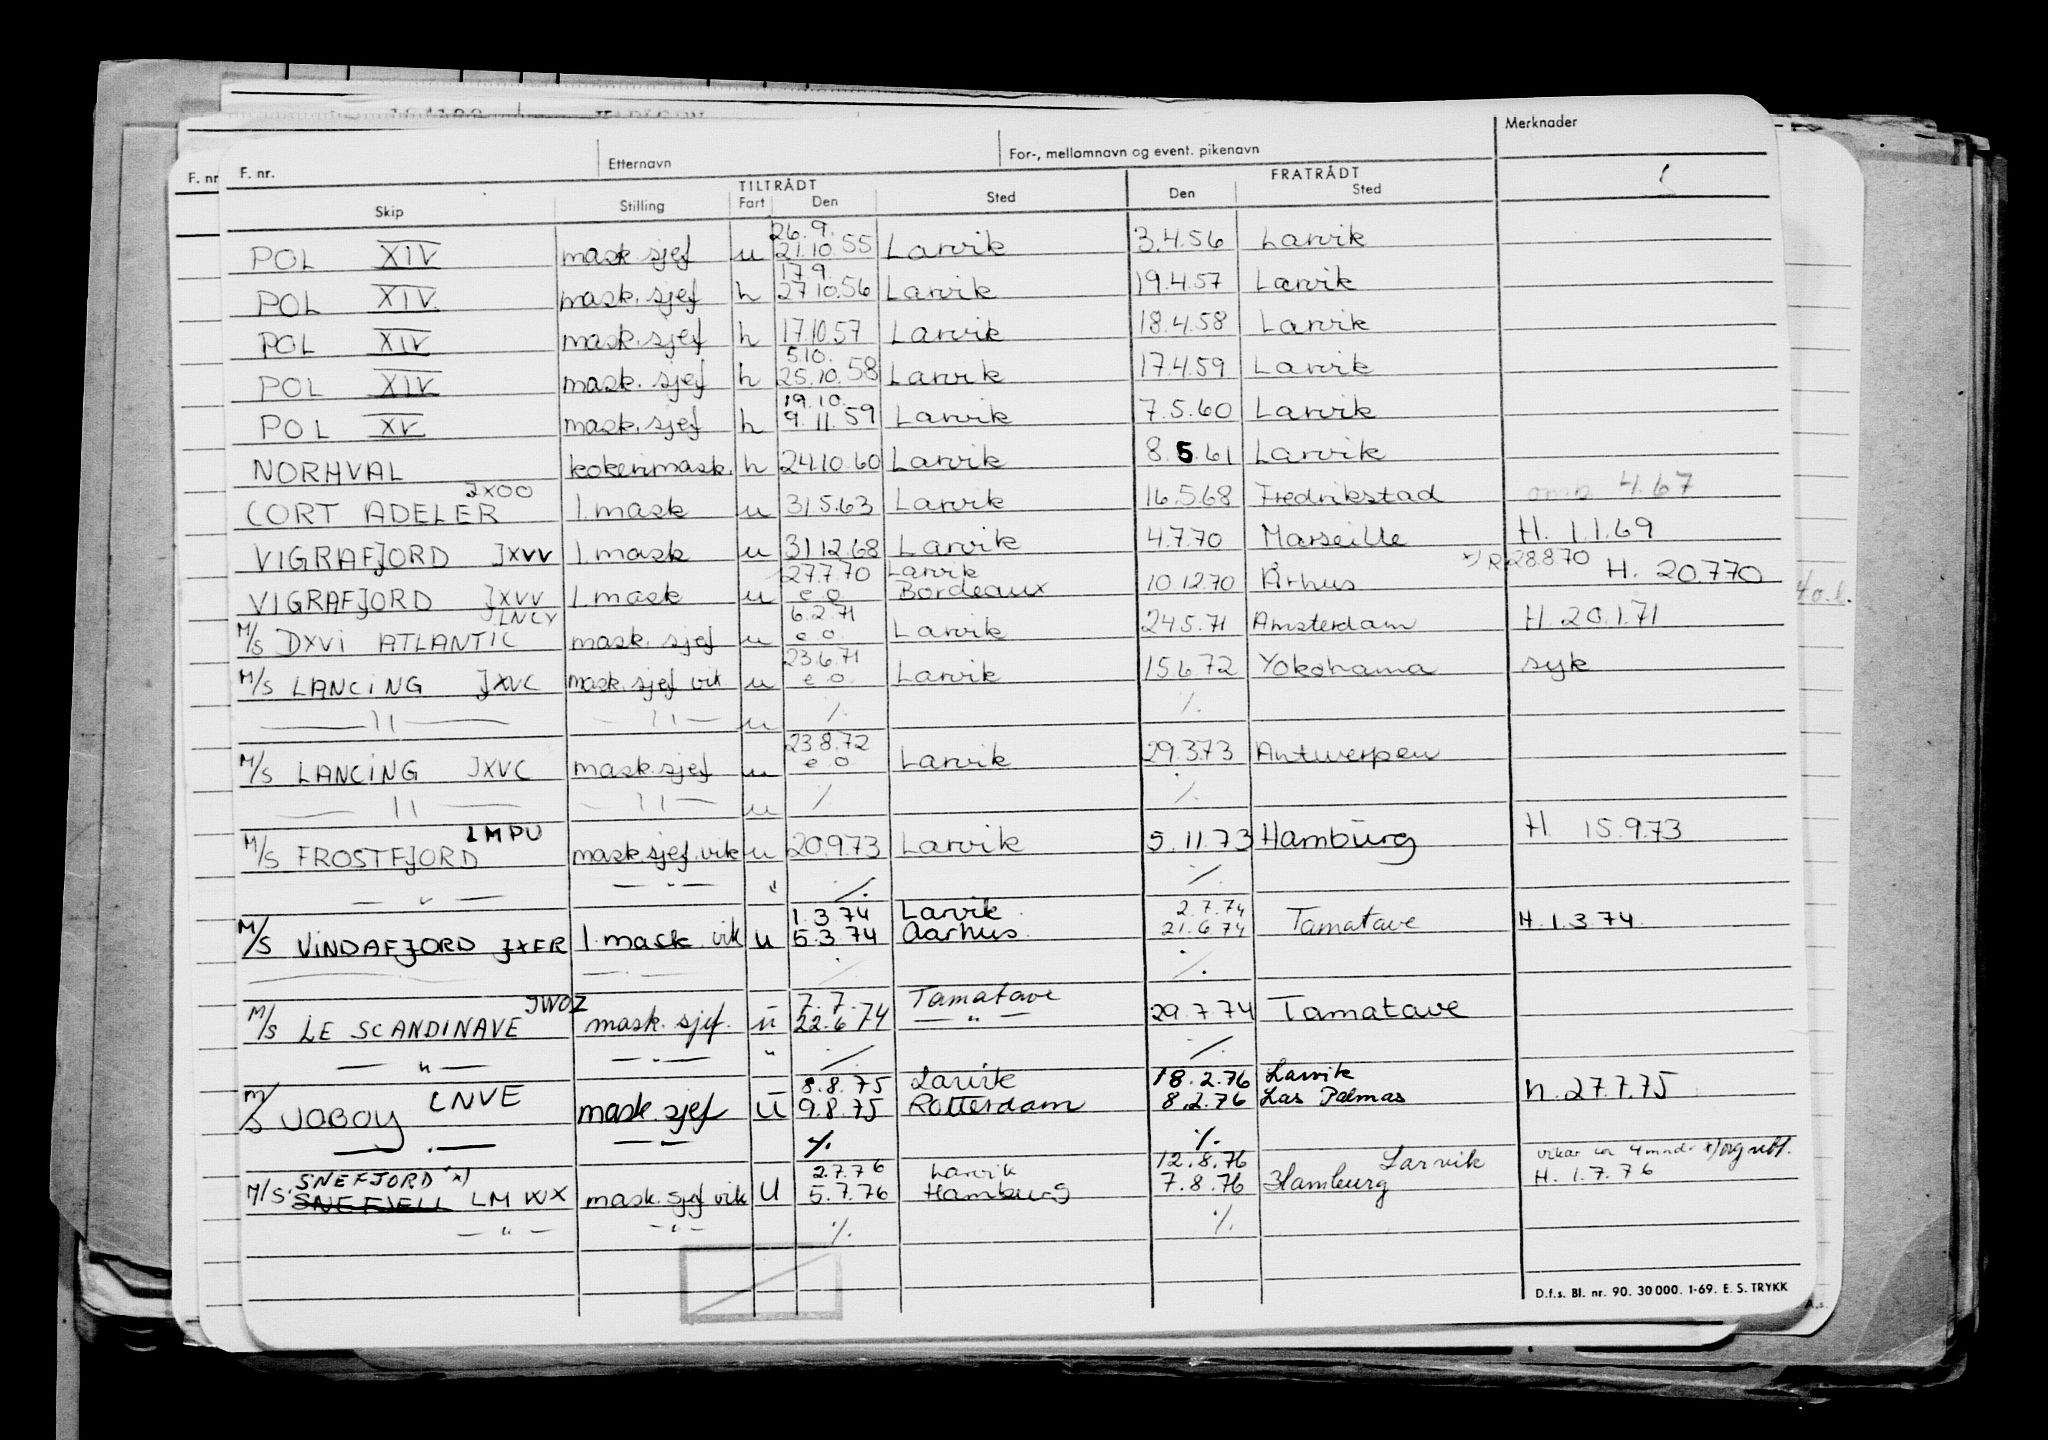 Merknader
F. nr. F. nr. Etternavn For-, mellomnavn og event. pikenavn
TILTRÅDT FRATRÅDT
Skip Stilling Fart Den Sted Den Sted
26.9.
POL XIV mask sjef u 21.10.55 Larvik 3.4.56 Larvik
17.9.
POL XIV mask. sjef h 27.10.56 Larvik 19.4.57 Larvik
POL XIV mask. sjef h 17.10.57 Larvik 18.4.58 Larvik
5.10.
POL XIV mask. sjef h 25.10.58 Larvik 17.4.59 Larvik
19.10.
POL XV mask. sjef h 9.11.59 Larvik 7.5.60 Larvik
NORHVAL kokerimask. h 24.10.60 Larvik 8.5.61 Larvik
JXOO
CORT ADELER 1. mask u 31.5.63 Larvik 16.5.68 Fredrikstad 4.67
VIGRAFJORD JXVV 1. mask u 31.12.68 Larvik 4.7.70 Marseille H. 1.1.69
27.7.70 Larvik x) R 28.8.70
VIGRAFJORD JXVV 1. mask u e.o. Bordeaux 10.12.70 Århus H. 20.7.70
LNCY 6.2.71
M/S DXVI ATLANTIC mask. sjef u e.o. Larvik 24.5.71 Amsterdam H 20.1.71
23.6.71
M/S LANCING JXVC mask. sjef vik u e.o. Larvik 15.6.72 Yokohama syk
— 11 — — 11 — u ./. ./.
23.8.72
M/S LANCING JXVC mask. sjef u e.o. Larvik 29.3.73 Antwerpen
— 11 — — 11 — u ./. ./.
LMPU
M/S FROSTFJORD mask. sjef. vik u 20.9.73 Larvik 5.11.73 Hamburg H 15.9.73
— " — — " — " ./. ./.
1.3.74 Larvik 2.7.74
M/S VINDAFJORD JXFR 1. mask. vik u 5.3.74 Aarhus 21.6.74 Tamatave H. 1.3.74.
— " — ./. ./.
JWOZ 7.7. Tamatave
M/S LE SCANDINAVE mask. sjef. u 22.6.74 — " — 29.7.74 Tamatave
— " — — " — " ./. ./.
8.8.75 Larvik 18.2.76 Larvik
M/S JOBOY LNVE mask sjef u 9.8.75 Rotterdam 8.2.76 Las Palmas h. 27.7.75
— . — — — ./. ./.
SNEFJORD x) 2.7.76 Larvik 12.8.76 Larvik vikar 4 mndr
M/S SNEFJELL LMWX mask. sjef vik U 5.7.76 Hamburg 7.8.76 Hamburg H. 1.7.76
— " — — " — ./. ./.
D.f.s. Bl. nr. 90. 30 000. 1-69. E. S. TRYKK